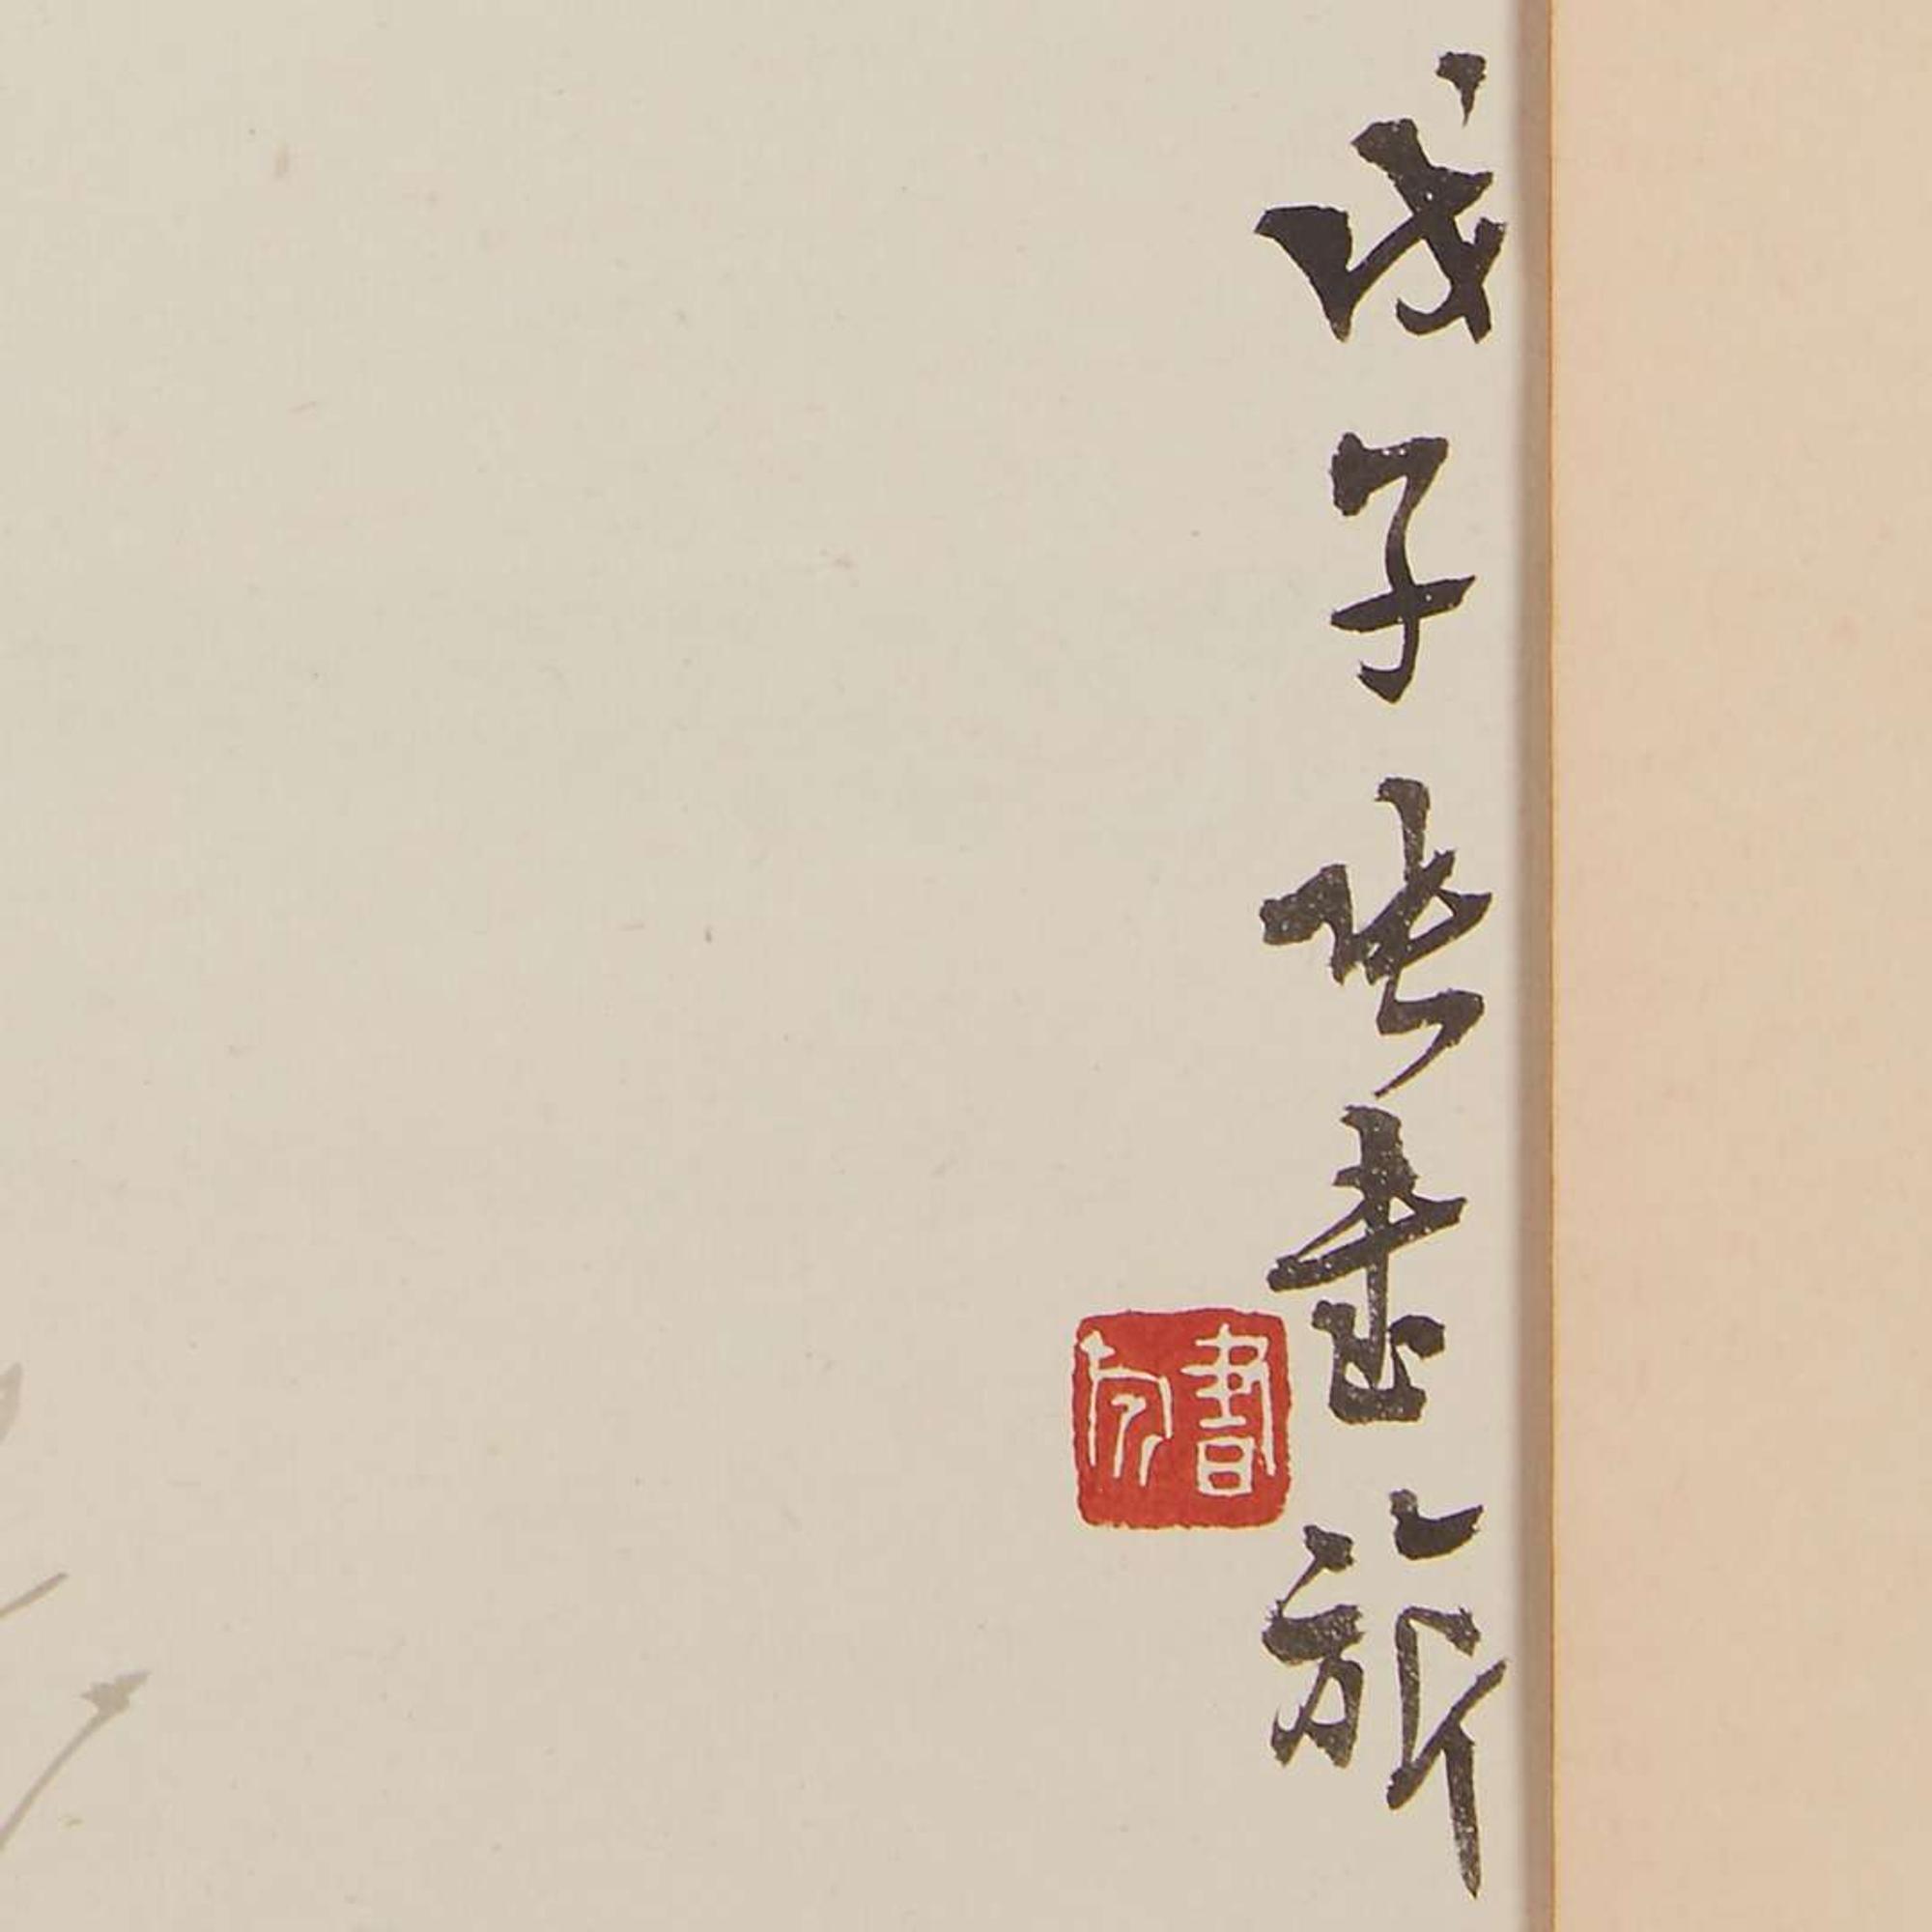 戊子張書旂
書旂